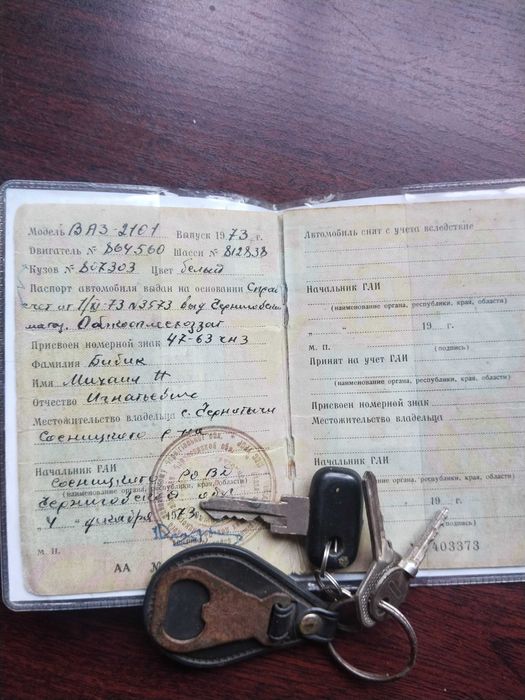 Модель ВАЗ-2101 Выпуск 1973 г.
Двигатель № 864560 Шасси № 812838
Кузов № 807303 Цвет белый
Паспорт автомобиля выдан на основании Справ
счет от 1/XI-73 №3573 выд Черниговским
маг.
Присвоен номерной знак 47-63 чнз
Фамилия Бибик
Имя Михаил
Отчество Игнатьевич
Местожительство владельца с.
Сосницкого р-на
Начальник ГАИ Сосницкого РОВД
(наименование органа, республики, края, области)
Черниговской обл
4 декабря 1973
М. П.
АА №
Автомобиль снят с учета вследствие
Начальник ГАИ
(наименование органа, республики, края, области)
" " 19 г.
М. П. (подпись)
Принят на учет ГАИ
(наименование органа, республики, края, области)
Присвоен номерной знак
Местожительство владельца
Начальник ГАИ
(наименование органа, республики, края, области)
19 г.
(подпись)
403373